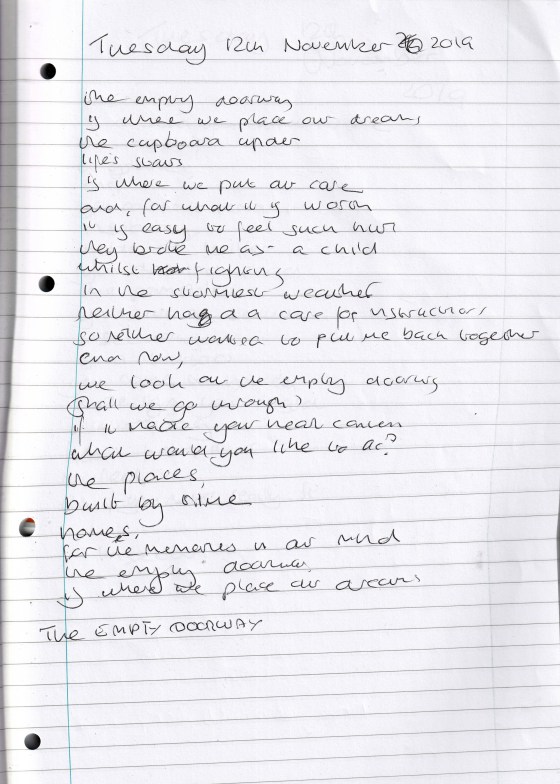 Tuesday 12th November 2019
the empty doorway
is where we place our dreams
the cupboard under
life's stairs
is where we put our care
and, for what it is worth
it is easy to feel such hurt
they broke me as a child
whilst fighting
in the stormiest weather
neither had a care for instructions
so neither wanted to put me back together
and now,
we look at the empty doorway
(shall we go through)
if it made your heart
what would you like to do?
the places,
built by time
homes,
for the memories in our mind
the empty doorway
is where we place our dreams
The EMPTY DOORWAY